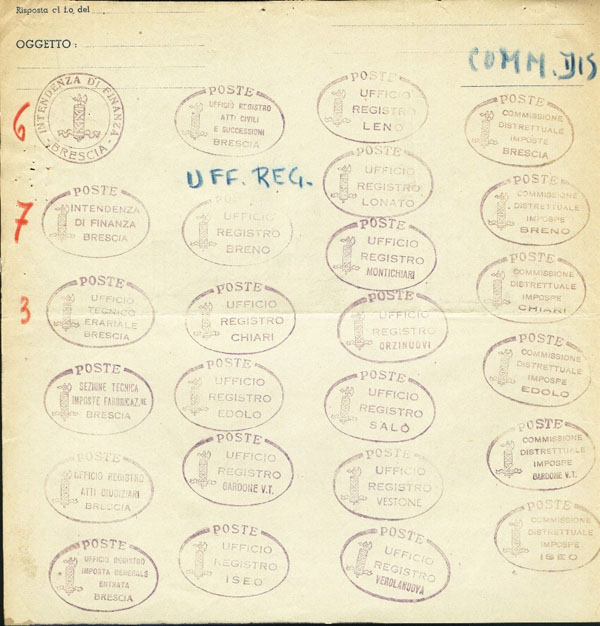 Risposta al f.o. del
OGGETTO :
COMM. DIS
6
INTENDENZA DI FINANZA
- BRESCIA -
POSTE
UFFICIO REGISTRO
ATTI CIVILI
E SUCCESSIONI
BRESCIA
POSTE
UFFICIO
REGISTRO
LENO
POSTE
COMMISSIONE
DISTRETTUALE
IMPOSTE
BRESCIA
UFF. REG.
7
POSTE
INTENDENZA
DI FINANZA
BRESCIA
POSTE
UFFICIO
REGISTRO
BRENO
POSTE
UFFICIO
REGISTRO
LONATO
POSTE
UFFICIO
REGISTRO
MONTICHIARI
POSTE
COMMISSIONE
DISTRETTUALE
IMPOSPE
BRENO
3
POSTE
UFFICIO
TECNICO
ERARIALE
BRESCIA
POSTE
UFFICIO
REGISTRO
CHIARI
POSTE
UFFICIO
REGISTRO
ORZINUOVI
POSTE
COMMISSIONE
DISTRETTUALE
IMPOSPE
CHIARI
POSTE
SEZIONE TECNICA
IMPOSTE FABBRICAZ.NE
BRESCIA
POSTE
UFFICIO
REGISTRO
EDOLO
POSTE
UFFICIO
REGISTRO
SALÒ
POSTE
COMMISSIONE
DISTRETTUALE
IMPOSPE
EDOLO
POSTE
UFFICIO REGISTRO
ATTI GIUDIZIARI
BRESCIA
POSTE
UFFICIO
REGISTRO
GARDONE V.T.
POSTE
UFFICIO
REGISTRO
VESTONE
POSTE
COMMISSIONE
DISTRETTUALE
IMPOSPE
GARDONE V.T.
POSTE
UFFICIO REGISTRO
IMPOSTA GENERALE
ENTRATA
BRESCIA
POSTE
UFFICIO
REGISTRO
ISEO
POSTE
UFFICIO
REGISTRO
VEROLANUOVA
POSTE
COMMISSIONE
DISTRETTUALE
IMPOSPE
ISEO